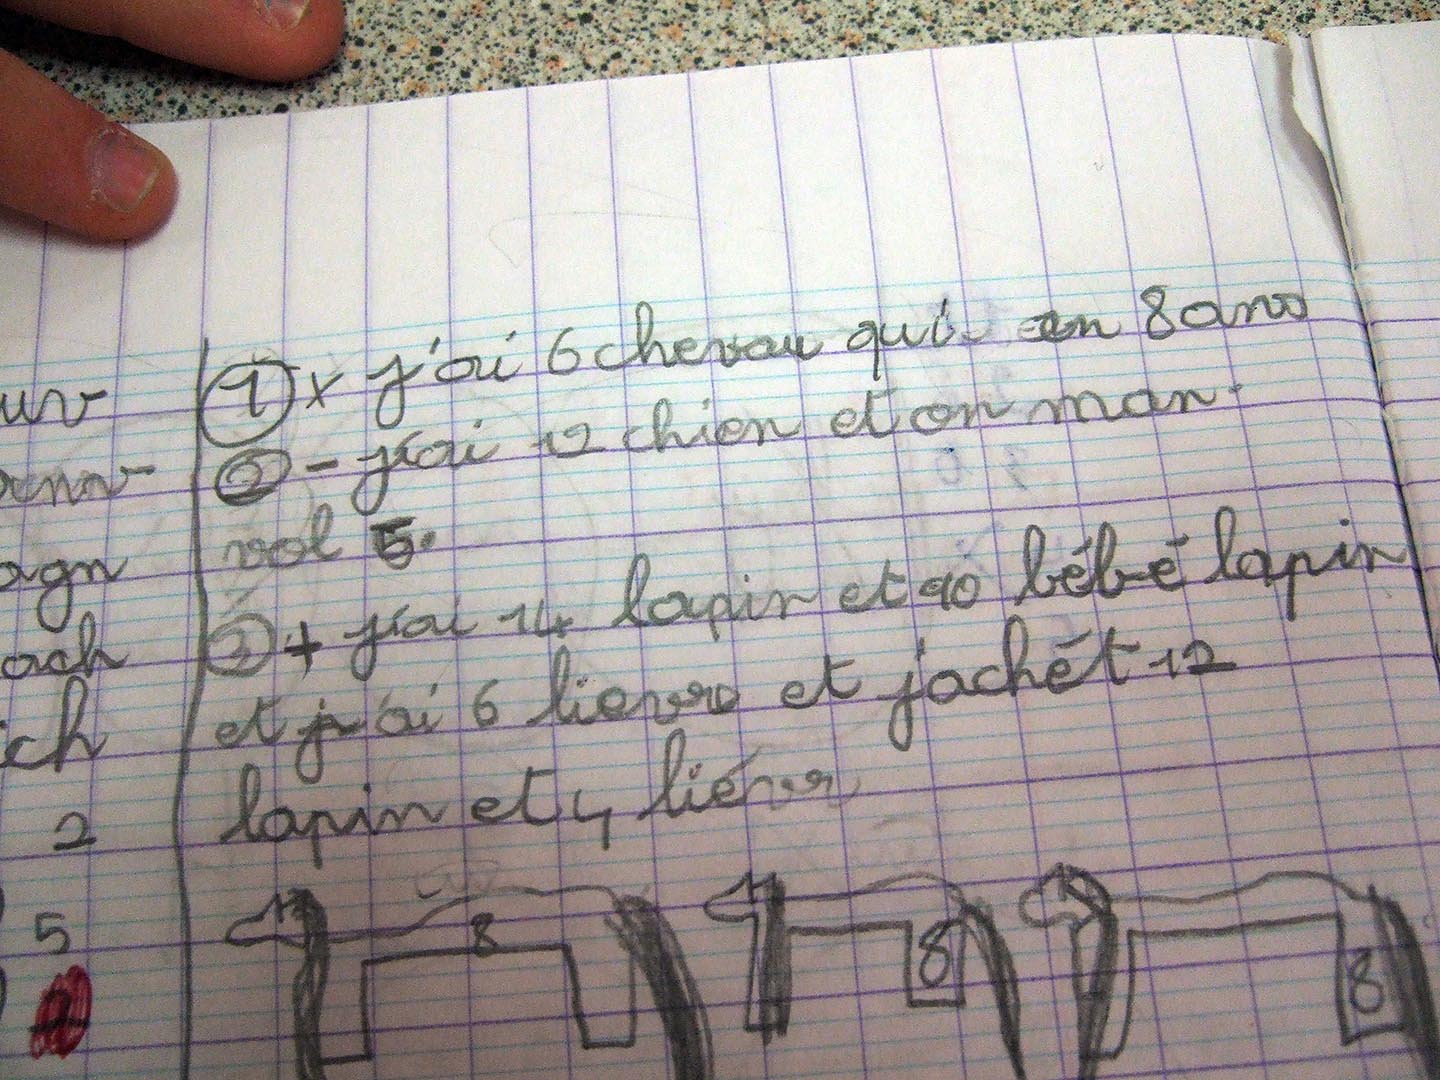 ① x j'ai 6 chevau qui on 8 ans
② - j'ai 12 chien et on man-
vol 5.
③ + j'ai 14 lapin et 10 bébé lapin
et j'ai 6 lievre et j'achét 12
lapin et 4 liévr
ch
2
5
8
8
8